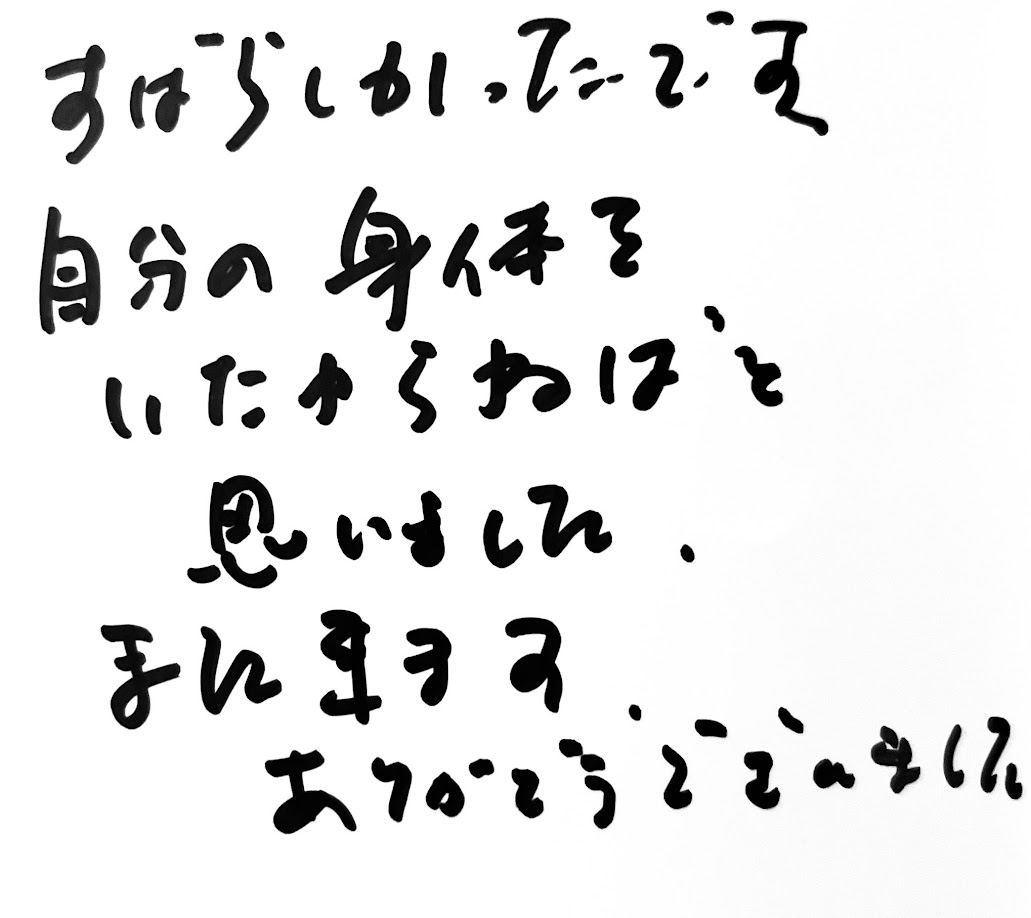 すばらしかったです
自分の身体を
いたわらねばと
思いました.
また来ます.
ありがとうございました